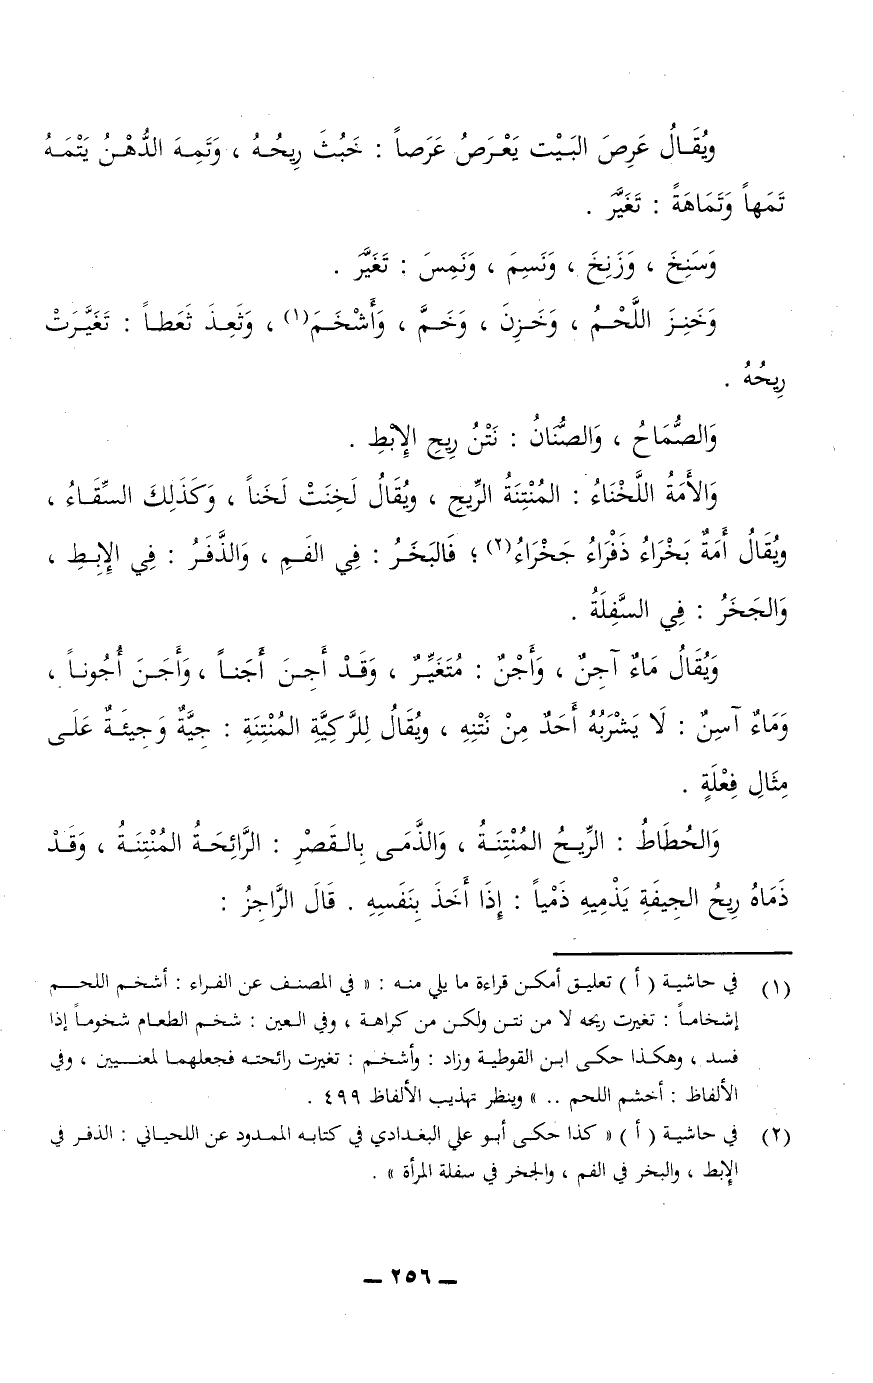 ويُقَـالُ عَرِصَ البَيْت يَعْرَصُ عَرَصاً : خَبُثَ رِيحُـهُ ، وَتَمِـهَ الدُّهْـنُ يَتْمَـهُ
تَمَهاً وَتَمَاهَةً : تَغَيَّر .
وَسَنِخَ ، وَزَنِخَ ، وَنَسِمَ ، وَنَمِسَ : تَغَيَّر .
وَخَنِـزَ اللَّحْـمُ ، وَخَـزِنَ ، وَخَـمَّ ، وَأَشْخَـمَ(١) ، وَثَعِـذَ ثَعَطـاً : تَغَيَّـرَتْ
رِيحُهُ .
وَالصُّمَاحُ ، وَالصُّنَانُ : نَتْنُ رِيحِ الإبْطِ .
وَالأَمَةُ اللَّخْنَاءُ : المُنْتِنَةُ الرِّيحِ ، ويُقَالُ لَخِنَتْ لَخَناً ، وَكَذَلِكَ السِّقَـاءُ ،
ويُقَالُ أَمَةٌ بَخْرَاءُ ذَفْرَاءُ جَخْرَاءُ(٢) ؛ فَالبَخَـرُ : فِي الفَـمِ ، وَالذَّفَـرُ : فِي الإبِـطِ ،
وَالجَخَرُ : فِي السَّفِلَةُ .
وَيُقَالُ مَاءٌ آجِنٌ ، وَأَجْنٌ : مُتَغَيِّـرٌ ، وَقَـدْ أَجِـنَ أَجَنـاً ، وَأَجَـنَ أُجُونـاً ،
وَمَاءٌ آسِنٌ : لَا يَشْرَبُهُ أَحَدٌ مِنْ نَتْنِهِ ، ويُقَالُ لِلرَّكِيَّةِ المُنْتِنَةِ : جِيَّةٌ وَجِيئَـةٌ عَلَـى
مِثَالِ فِعْلَةٍ .
وَالحُطَاطُ : الرِّيـحُ المُنْتِنَـةُ ، وَالذَّمَـى بِالـقَصْرِ : الرَّائِحَـةُ المُنْتِنَـةُ ، وَقَـدْ
ذَمَاهُ رِيحُ الجِيفَةِ يَذْمِيهِ ذَمْياً : إِذَا أَخَذَ بِنَفَسِهِ . قَالَ الرَّاجِزُ :
(١) في حاشيـة ( أ ) تعليـق أمكـن قراءة ما يلي منـه : « في المصنـف عن الفـراء : أشخـم اللحـم
إشخامـاً : تغيرت ريحه لا من نتـن ولكـن من كراهـة ، وفي الـعين : شخـم الطعـام شخومـاً إذا
فسد ، وهكـذا حكـى ابـن القوطيـة وزاد : وأشخـم : تغيرت رائحتـه فجعلهمـا لمعنـيين ، وفي
الألفاظ : أخشم اللحم .. » وينظر تهذيب الألفاظ ٤٩٩ .
(٢) في حاشيـة ( أ ) « كذا حكـى أبـو علي البغـدادي في كتابـه الممـدود عن اللحيـاني : الذفـر في
الإبط ، والبخر في الفم ، والجخر في سفلة المرأة » .
ــ ٢٥٦ ــ